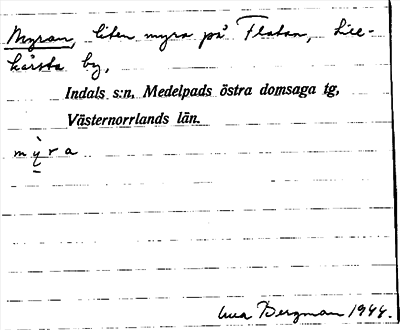 Myran, liten myra på Flatan, Lill-
härsta by,
Indals s:n, Medelpads östra domsaga tg,
Västernorrlands län.
mỳra
Bergman 1944.